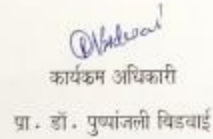 कार्यक्रम अधिकारी
प्रा. डॉ. पुष्पांजली विडवाई